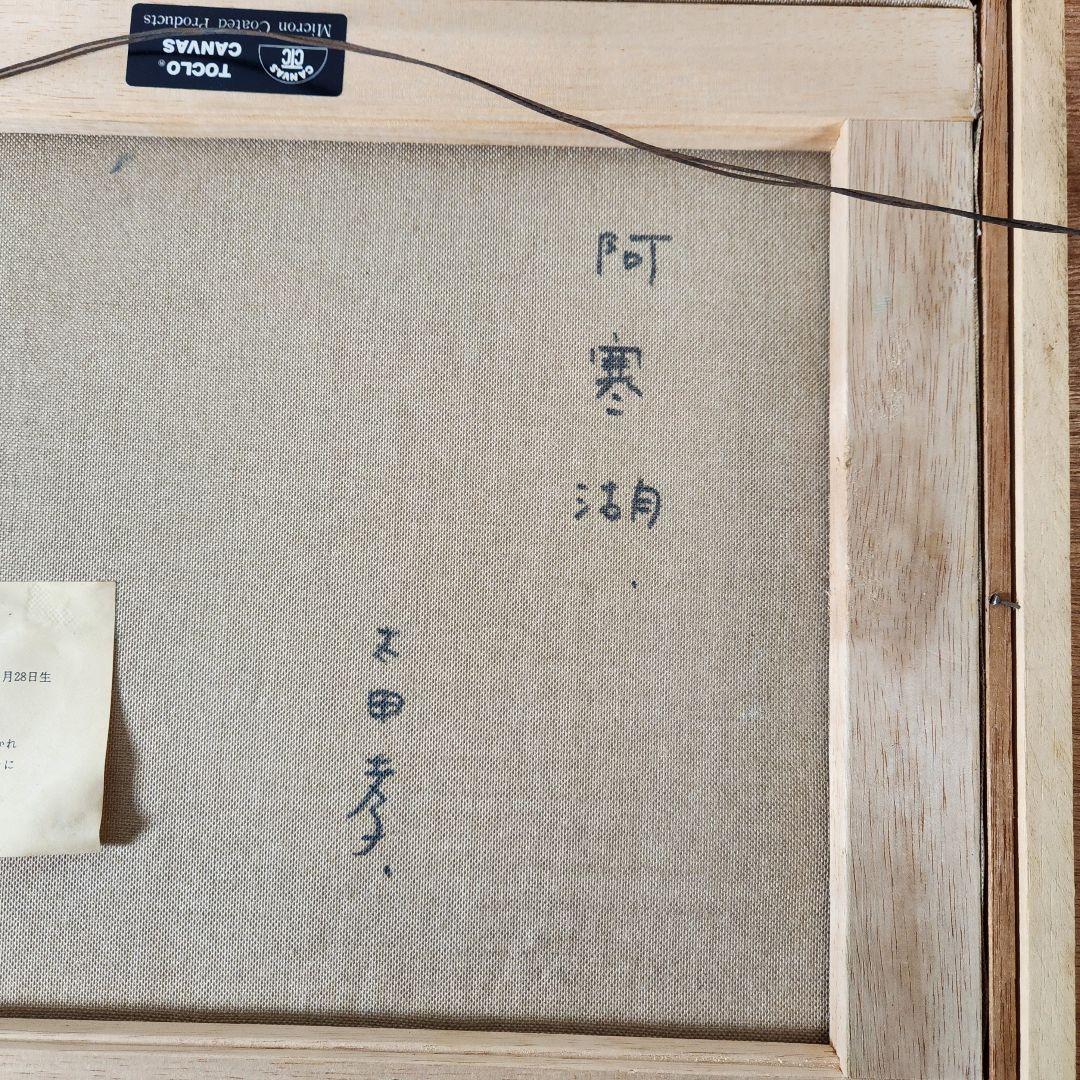 Micron Coated Products
TOCLO®
CANVAS
CANVAS
CTC
阿寒湖.
太田孝.
月28日生
かれ
に